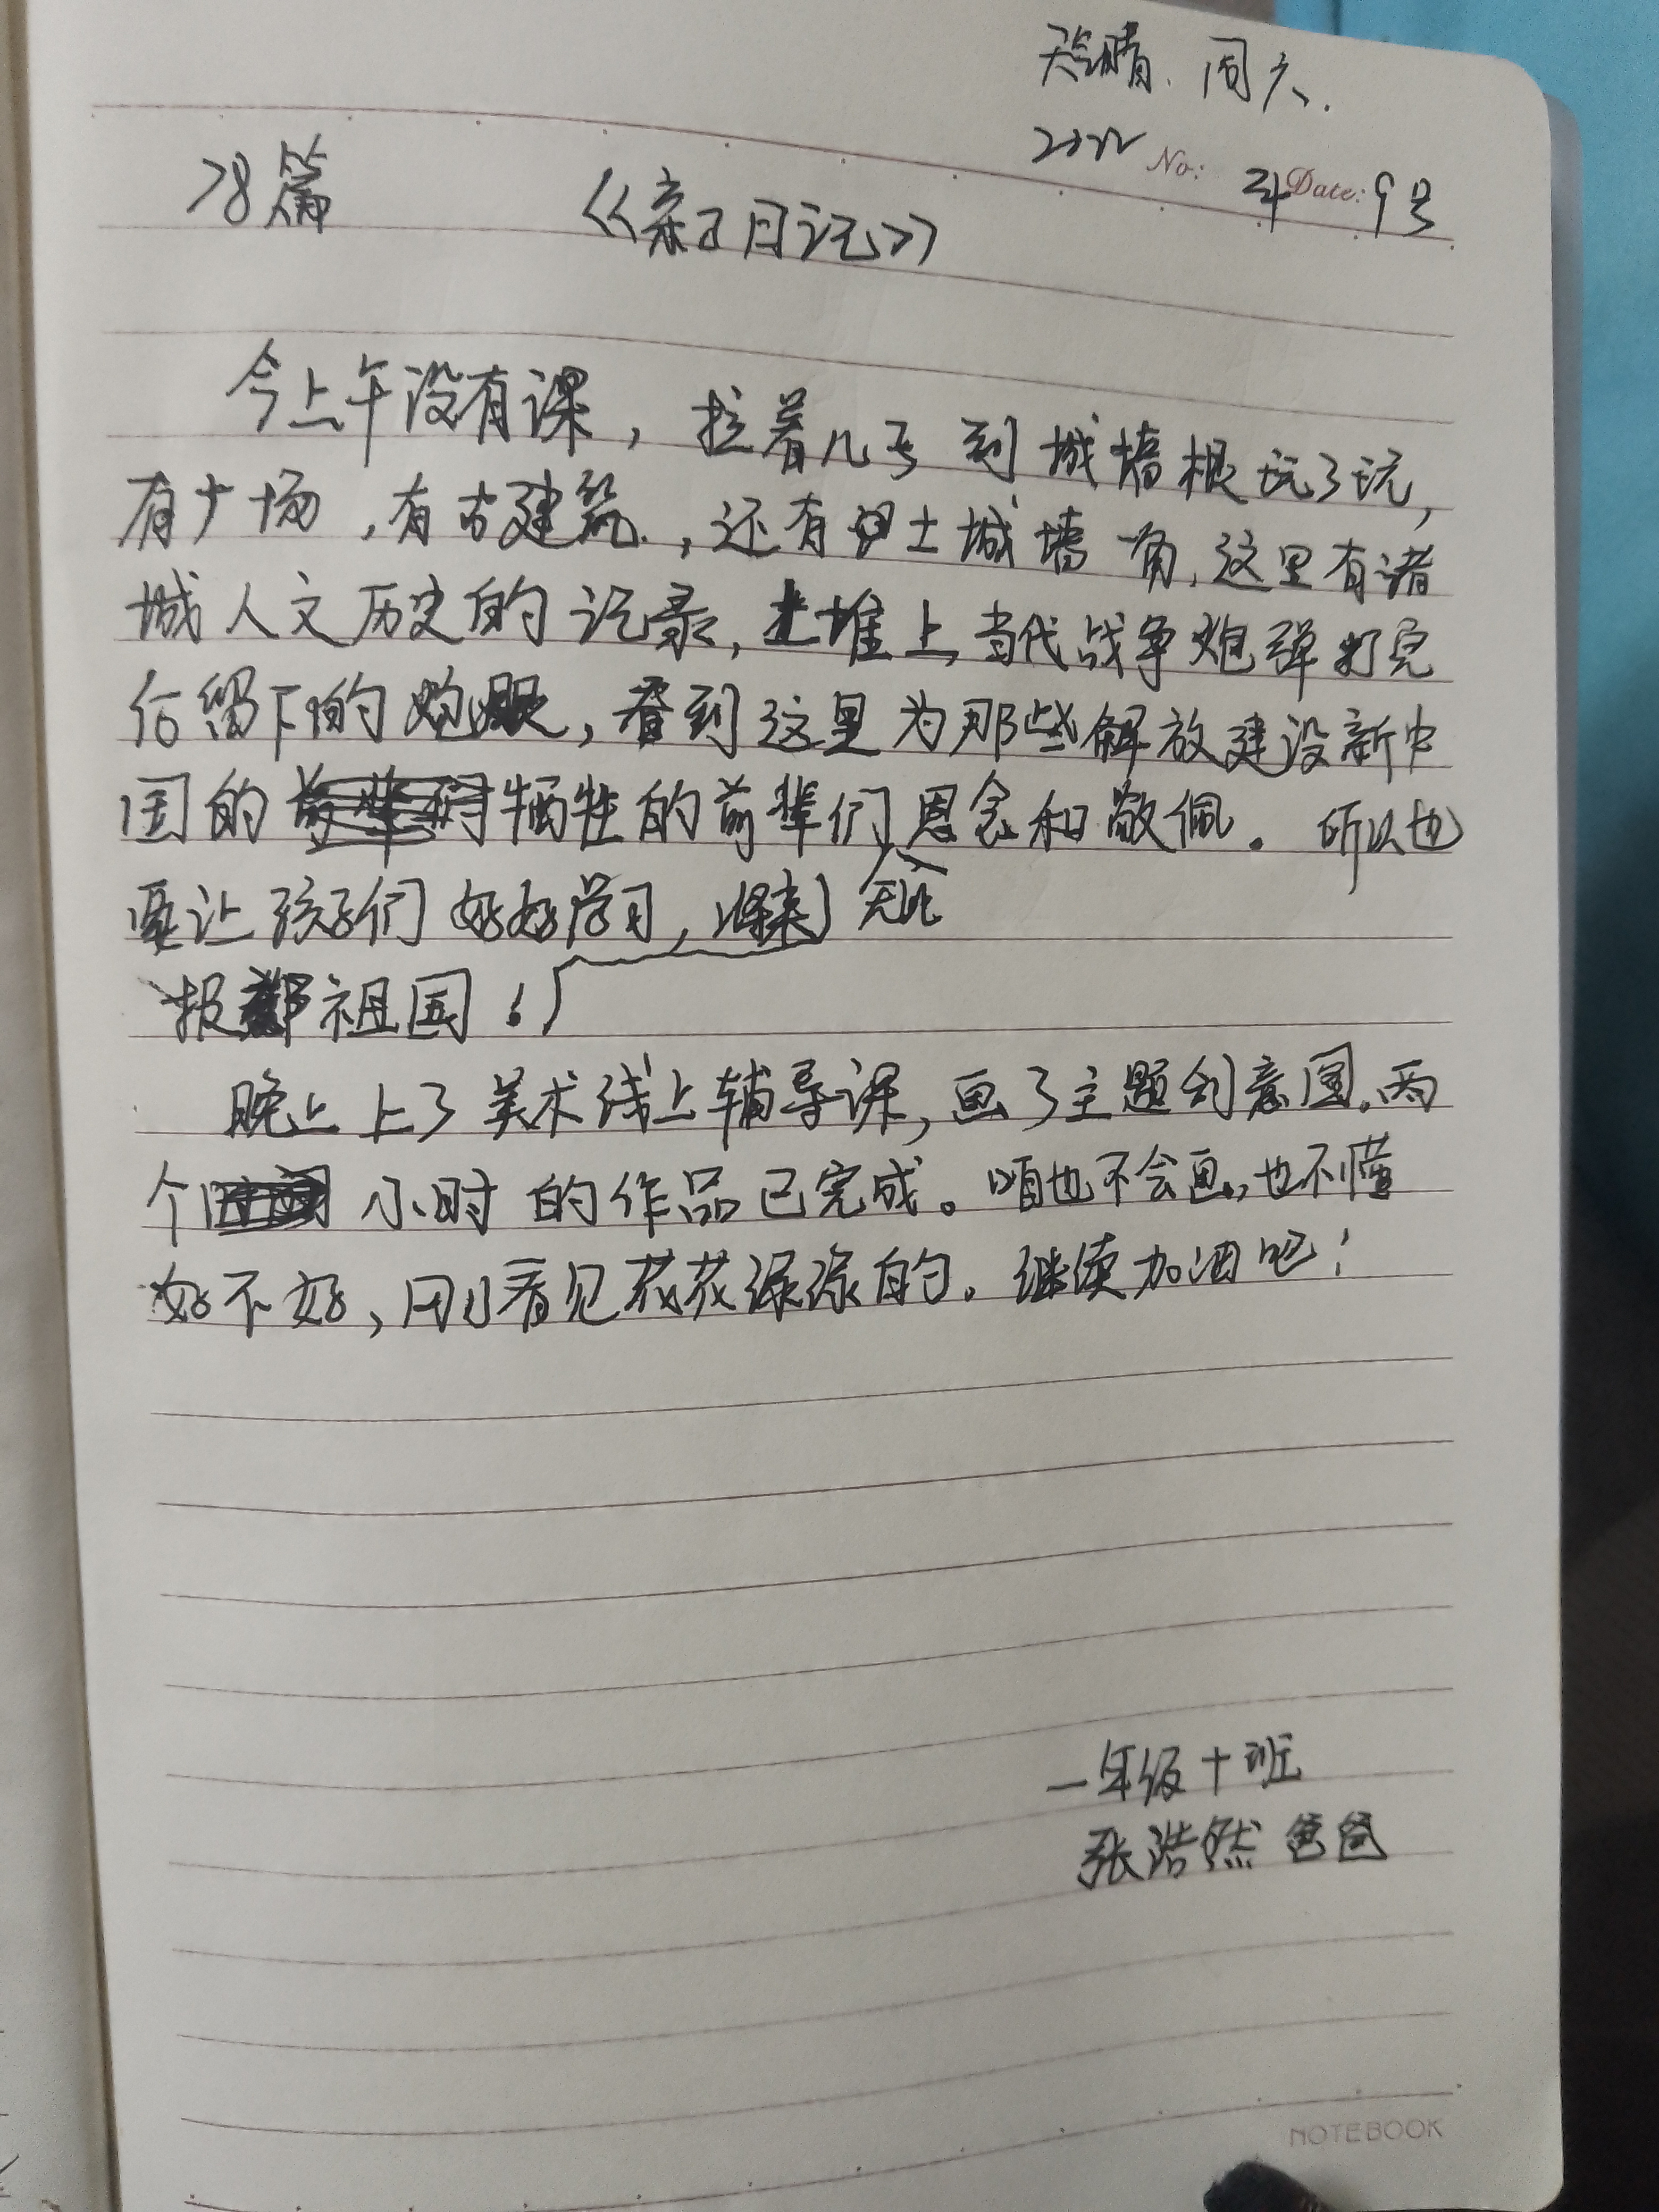 天气晴. 周六.
2022 No: 4 Date: 9号
78篇 《亲子日记》
今上午没有课，拉着儿子到城墙根玩了玩，
有广场，有古建筑，还有旧土城墙一角，这里有诸
城人文历史的记录，土堆上，当代战争炮弹打完
后留下的炮眼，看到这里为那些解放建设新中
国的牺牲的前辈们恩念和敬佩。所以也
要让孩子们好好学习，将来
报祖国！
晚上上了美术线上辅导课，画了主题创意图。两
个小时的作品已完成。咱也不会画，也不懂
好不好，刚看见花花绿绿的。继续加油吧！
一年级十班
张浩然爸爸
NOTEBOOK